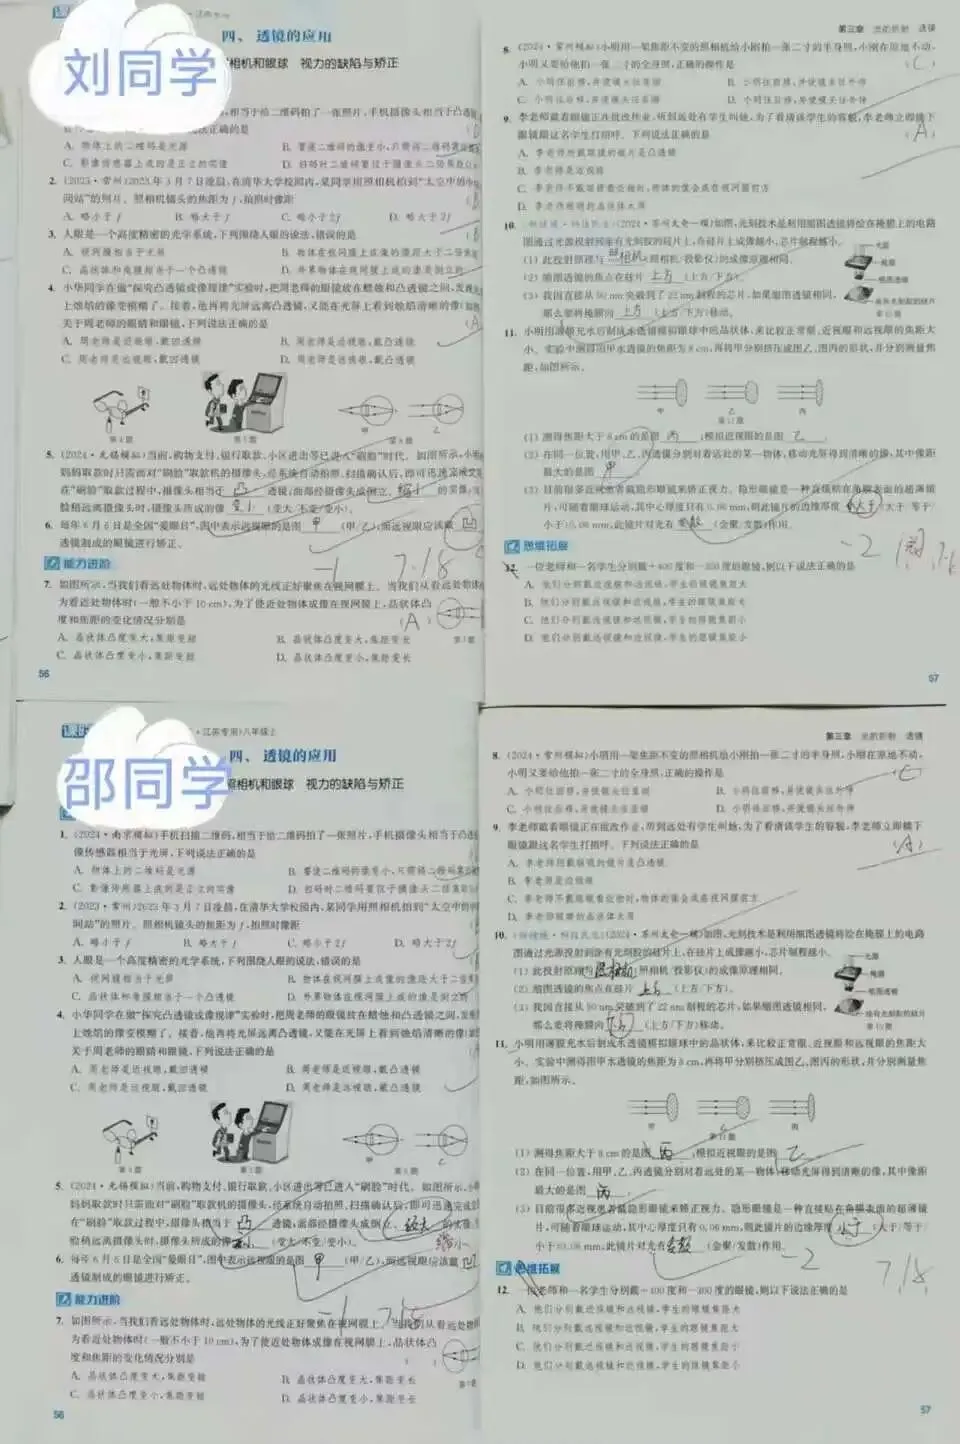 刘同学
四、透镜的应用
照相机和眼球 视力的缺陷与矫正
相当于给二维码拍了一张照片,手机摄像头相当于凸透
说法正确的是
A. 物体上的二维码是光源
B. 要使二维码的像变小,只需将二维码
C. 影像传感器上成的是正立的实像
D. 扫码时二维码要位于摄像头二倍焦距
2. (2023·常州)2023年3月7日凌晨,在清华大学校园内,某同学用照相机拍到“太空中的
间站”的照片。照相机镜头的焦距为f,拍照时像距
A. 略小于f
B. 略大于f
C. 略小于2f
D. 略大于2f
3. 人眼是一个高度精密的光学系统,下列围绕人眼的说法,错误的是
A. 视网膜相当于光屏
B. 物体在视网膜上成像的像距大于二倍
C. 晶状体和角膜相当于一个凸透镜
D. 外界物体在视网膜上成的像是倒立的
4. 小华同学在做“探究凸透镜成像规律”实验时,把周老师的眼镜放在蜡烛和凸透镜之间,发
上烛焰的像变模糊了。接着,他再将光屏远离凸透镜,又能在光屏上看到烛焰清晰的像
关于周老师的眼睛和眼镜,下列说法正确的是
(A)
A. 周老师是近视眼,戴凹透镜
B. 周老师是近视眼,戴凸透镜
C. 周老师是远视眼,戴凹透镜
D. 周老师是远视眼,戴凸透镜
第4题
第5题
甲
乙
第6题
5. (2024·无锡模拟)当前,购物支付、银行取款、小区进出等已进入“刷脸”时代。如图所示,小
妈妈取款时只需面对“刷脸”取款机的摄像头,经系统自动拍照、扫描确认后,即可迅速完成交
在“刷脸”取款过程中,摄像头相当于 凸 透镜,面部经摄像头成倒立、 缩小 的实像;
脸稍远离摄像头时,摄像头所成的像 变小 (变大/不变/变小)。
6. 每年6月6日是全国“爱眼日”,图中表示远视眼的是图 甲 (甲/乙),而远视眼应该戴 凹
透镜制成的眼镜进行矫正。
-1 7.18
能力进阶
7. 如图所示,当我们看远处物体时,远处物体的光线正好聚焦在视网膜上。当我们从看远处物体
为看近处物体时(一般不小于10 cm),为了使近处物体成像在视网膜上,晶状体凸
度和焦距的变化情况分别是
(A)
A. 晶状体凸度变大,焦距变短
B. 晶状体凸度变大,焦距变长
C. 晶状体凸度变小,焦距变短
D. 晶状体凸度变小,焦距变长
56
第三章 光的折射 透镜
8. (2024·常州模拟)小明用一架焦距不变的照相机给小刚拍一张二寸的半身照,小刚在原地不动,
小明又要给他拍一张二寸的全身照,正确的操作是
(C)
A. 小明往前移,并使镜头往里缩
B. 小明往前移,并使镜头往外伸
C. 小明往后移,并使镜头往里缩
D. 小明往后移,并使镜头往外伸
9. 李老师戴着眼镜正在批改作业,听到远处有学生叫她,为了看清该学生的容貌,李老师立即摘下
眼镜跟这名学生打招呼。下列说法正确的是
(A)
A. 李老师所戴眼镜的镜片是凸透镜
B. 李老师是近视眼
C. 李老师不戴眼镜看近物时,物体的像会成在视网膜前方
D. 李老师眼睛的晶状体太厚
10. (2024·苏州太仓一模)如图,光刻技术是利用缩图透镜将绘在掩膜上的电路
图通过光源投射到涂有光刻胶的硅片上,在硅片上成像越小,芯片制程越小。
(1) 此投影原理与 照相机 (照相机/投影仪)的成像原理相同。
(2) 缩图透镜的焦点在硅片 上方 (上方/下方)。
(3) 我国直接从90 nm突破到了22 nm制程的芯片,如果缩图透镜相同,
那么要将掩膜向 上方 (上方/下方)移动。
光源
掩膜
缩图透镜
涂有光刻胶的硅片
第10题
11. 小明用薄膜充水后制成水透镜模拟眼球中的晶状体,来比较正常眼、近视眼和远视眼的焦距大
小。实验中测得图甲水透镜的焦距为8 cm,再将甲分别挤压成图乙、图丙的形状,并分别测量焦
距,如图所示。
甲
乙
丙
第11题
(1) 测得焦距大于8 cm的是图 丙 ,模拟近视眼的是图 乙 。
(2) 在同一位置,用甲、乙、丙透镜分别对着远处的某一物体,移动光屏得到清晰的像,其中像距
最大的是图 甲 。
(3) 目前很多近视患者戴隐形眼镜来矫正视力。隐形眼镜是一种直接贴在角膜表面的超薄镜
片,可随着眼球运动,其中心厚度只有0.06 mm,则此镜片的边缘厚度 大于 (大于/等于/
小于)0.06 mm,此镜片对光有 发散 (会聚/发散)作用。
-2
思维拓展
12. 一位老师和一名学生分别戴+400度和-300度的眼镜,则以下说法正确的是
A. 他们分别戴近视镜和远视镜,学生的眼镜焦距大
B. 他们分别戴远视镜和近视镜,学生的眼镜焦距大
C. 他们分别戴近视镜和远视镜,学生的眼镜焦距小
D. 他们分别戴远视镜和近视镜,学生的眼镜焦距小
57
江苏专用)八年级上
邵同学
四、透镜的应用
照相机和眼球 视力的缺陷与矫正
1. (2024·南京模拟)手机扫描二维码,相当于给二维码拍了一张照片,手机摄像头相当于凸透
像传感器相当于光屏,下列说法正确的是
A. 物体上的二维码是光源
B. 要使二维码的像变小,只需将二维码
C. 影像传感器上成的是正立的实像
D. 扫码时二维码要位于摄像头二倍焦距
2. (2023·常州)2023年3月7日凌晨,在清华大学校园内,某同学用照相机拍到“太空中的
间站”的照片。照相机镜头的焦距为f,拍照时像距
A. 略小于f
B. 略大于f
C. 略小于2f
D. 略大于2f
3. 人眼是一个高度精密的光学系统,下列围绕人眼的说法,错误的是
A. 视网膜相当于光屏
B. 物体在视网膜上成像的像距大于二倍
C. 晶状体和角膜相当于一个凸透镜
D. 外界物体在视网膜上成的像是倒立的
4. 小华同学在做“探究凸透镜成像规律”实验时,把周老师的眼镜放在蜡烛和凸透镜之间,发
上烛焰的像变模糊了。接着,他再将光屏远离凸透镜,又能在光屏上看到烛焰清晰的像
关于周老师的眼睛和眼镜,下列说法正确的是
A. 周老师是近视眼,戴凹透镜
B. 周老师是近视眼,戴凸透镜
C. 周老师是远视眼,戴凹透镜
D. 周老师是远视眼,戴凸透镜
第4题
第5题
甲
乙
第6题
5. (2024·无锡模拟)当前,购物支付、银行取款、小区进出等已进入“刷脸”时代。如图所示,小
妈妈取款时只需面对“刷脸”取款机的摄像头,经系统自动拍照、扫描确认后,即可迅速完成
在“刷脸”取款过程中,摄像头相当于 凸 透镜,面部经摄像头成倒立、 放大 的实像
缩小
脸稍远离摄像头时,摄像头所成的像 变小 (变大/不变/变小)。
6. 每年6月6日是全国“爱眼日”,图中表示远视眼的是图 甲 (甲/乙),而远视眼应该戴 凹
透镜制成的眼镜进行矫正。
-1 7.18
能力进阶
7. 如图所示,当我们看远处物体时,远处物体的光线正好聚焦在视网膜上。当我们从看远处物
为看近处物体时(一般不小于10 cm),为了使近处物体成像在视网膜上,晶状体凸
度和焦距的变化情况分别是
A. 晶状体凸度变大,焦距变短
B. 晶状体凸度变大,焦距变长
C. 晶状体凸度变小,焦距变短
D. 晶状体凸度变小,焦距变长
56
第三章 光的折射 透镜
8. (2024·常州模拟)小明用一架焦距不变的照相机给小刚拍一张二寸的半身照,小刚在原地不动,
小明又要给他拍一张二寸的全身照,正确的操作是
C
A. 小明往前移,并使镜头往里缩
B. 小明往前移,并使镜头往外伸
C. 小明往后移,并使镜头往里缩
D. 小明往后移,并使镜头往外伸
9. 李老师戴着眼镜正在批改作业,听到远处有学生叫她,为了看清该学生的容貌,李老师立即摘下
眼镜跟这名学生打招呼。下列说法正确的是
(A)
A. 李老师所戴眼镜的镜片是凸透镜
B. 李老师是近视眼
C. 李老师不戴眼镜看近物时,物体的像会成在视网膜前方
D. 李老师眼睛的晶状体太厚
10. (2024·苏州太仓一模)如图,光刻技术是利用缩图透镜将绘在掩膜上的电路
图通过光源投射到涂有光刻胶的硅片上,在硅片上成像越小,芯片制程越小。
(1) 此投影原理与 照相机 (照相机/投影仪)的成像原理相同。
(2) 缩图透镜的焦点在硅片 上方 (上方/下方)。
(3) 我国直接从90 nm突破到了22 nm制程的芯片,如果缩图透镜相同,
那么要将掩膜向 下方 (上方/下方)移动。
光源
掩膜
缩图透镜
涂有光刻胶的硅片
第10题
11. 小明用薄膜充水后制成水透镜模拟眼球中的晶状体,来比较正常眼、近视眼和远视眼的焦距大
小。实验中测得图甲水透镜的焦距为8 cm,再将甲分别挤压成图乙、图丙的形状,并分别测量焦
距,如图所示。
甲
乙
丙
第11题
(1) 测得焦距大于8 cm的是图 丙 ,模拟近视眼的是图 乙 。
(2) 在同一位置,用甲、乙、丙透镜分别对着远处的某一物体,移动光屏得到清晰的像,其中像距
最大的是图 丙 。
(3) 目前很多近视患者戴隐形眼镜来矫正视力。隐形眼镜是一种直接贴在角膜表面的超薄镜
片,可随着眼球运动,其中心厚度只有0.06 mm,则此镜片的边缘厚度 小于 (大于/等于/
小于)0.06 mm,此镜片对光有 发散 (会聚/发散)作用。
-2
7.18
思维拓展
12. 一位老师和一名学生分别戴+400度和-300度的眼镜,则以下说法正确的是
A. 他们分别戴近视镜和远视镜,学生的眼镜焦距大
B. 他们分别戴远视镜和近视镜,学生的眼镜焦距大
C. 他们分别戴近视镜和远视镜,学生的眼镜焦距小
D. 他们分别戴远视镜和近视镜,学生的眼镜焦距小
57